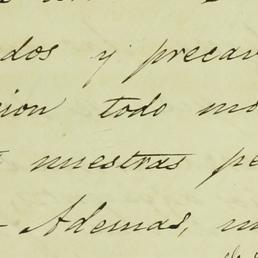 dos y precav
cion todo mo
nuestras pe
Ademas, m